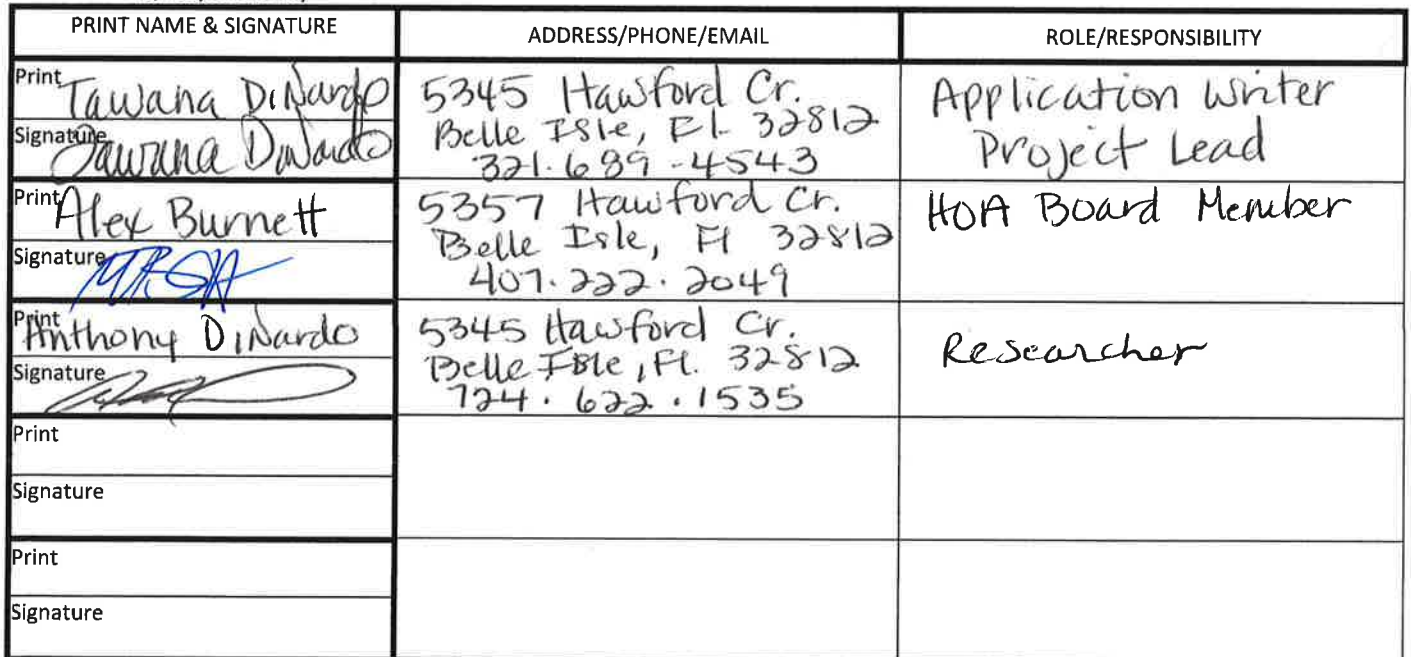 PRINT NAME & SIGNATURE
ADDRESS/PHONE/EMAIL
ROLE/RESPONSIBILITY
Print Tawana DiNardo
Signature Tawana DiNardo
5345 Hawford Cr.
Belle Isle, Fl. 32812
321.689-4543
Application Writer
Project Lead
Print Alex Burnett
Signature
5357 Hawford Cr.
Belle Isle, Fl 32812
407.222.2049
HOA Board Member
Print Anthony DiNardo
Signature
5345 Hawford Cr.
Belle Isle, Fl. 32812
724.622.1535
Researcher
Print
Signature
Print
Signature